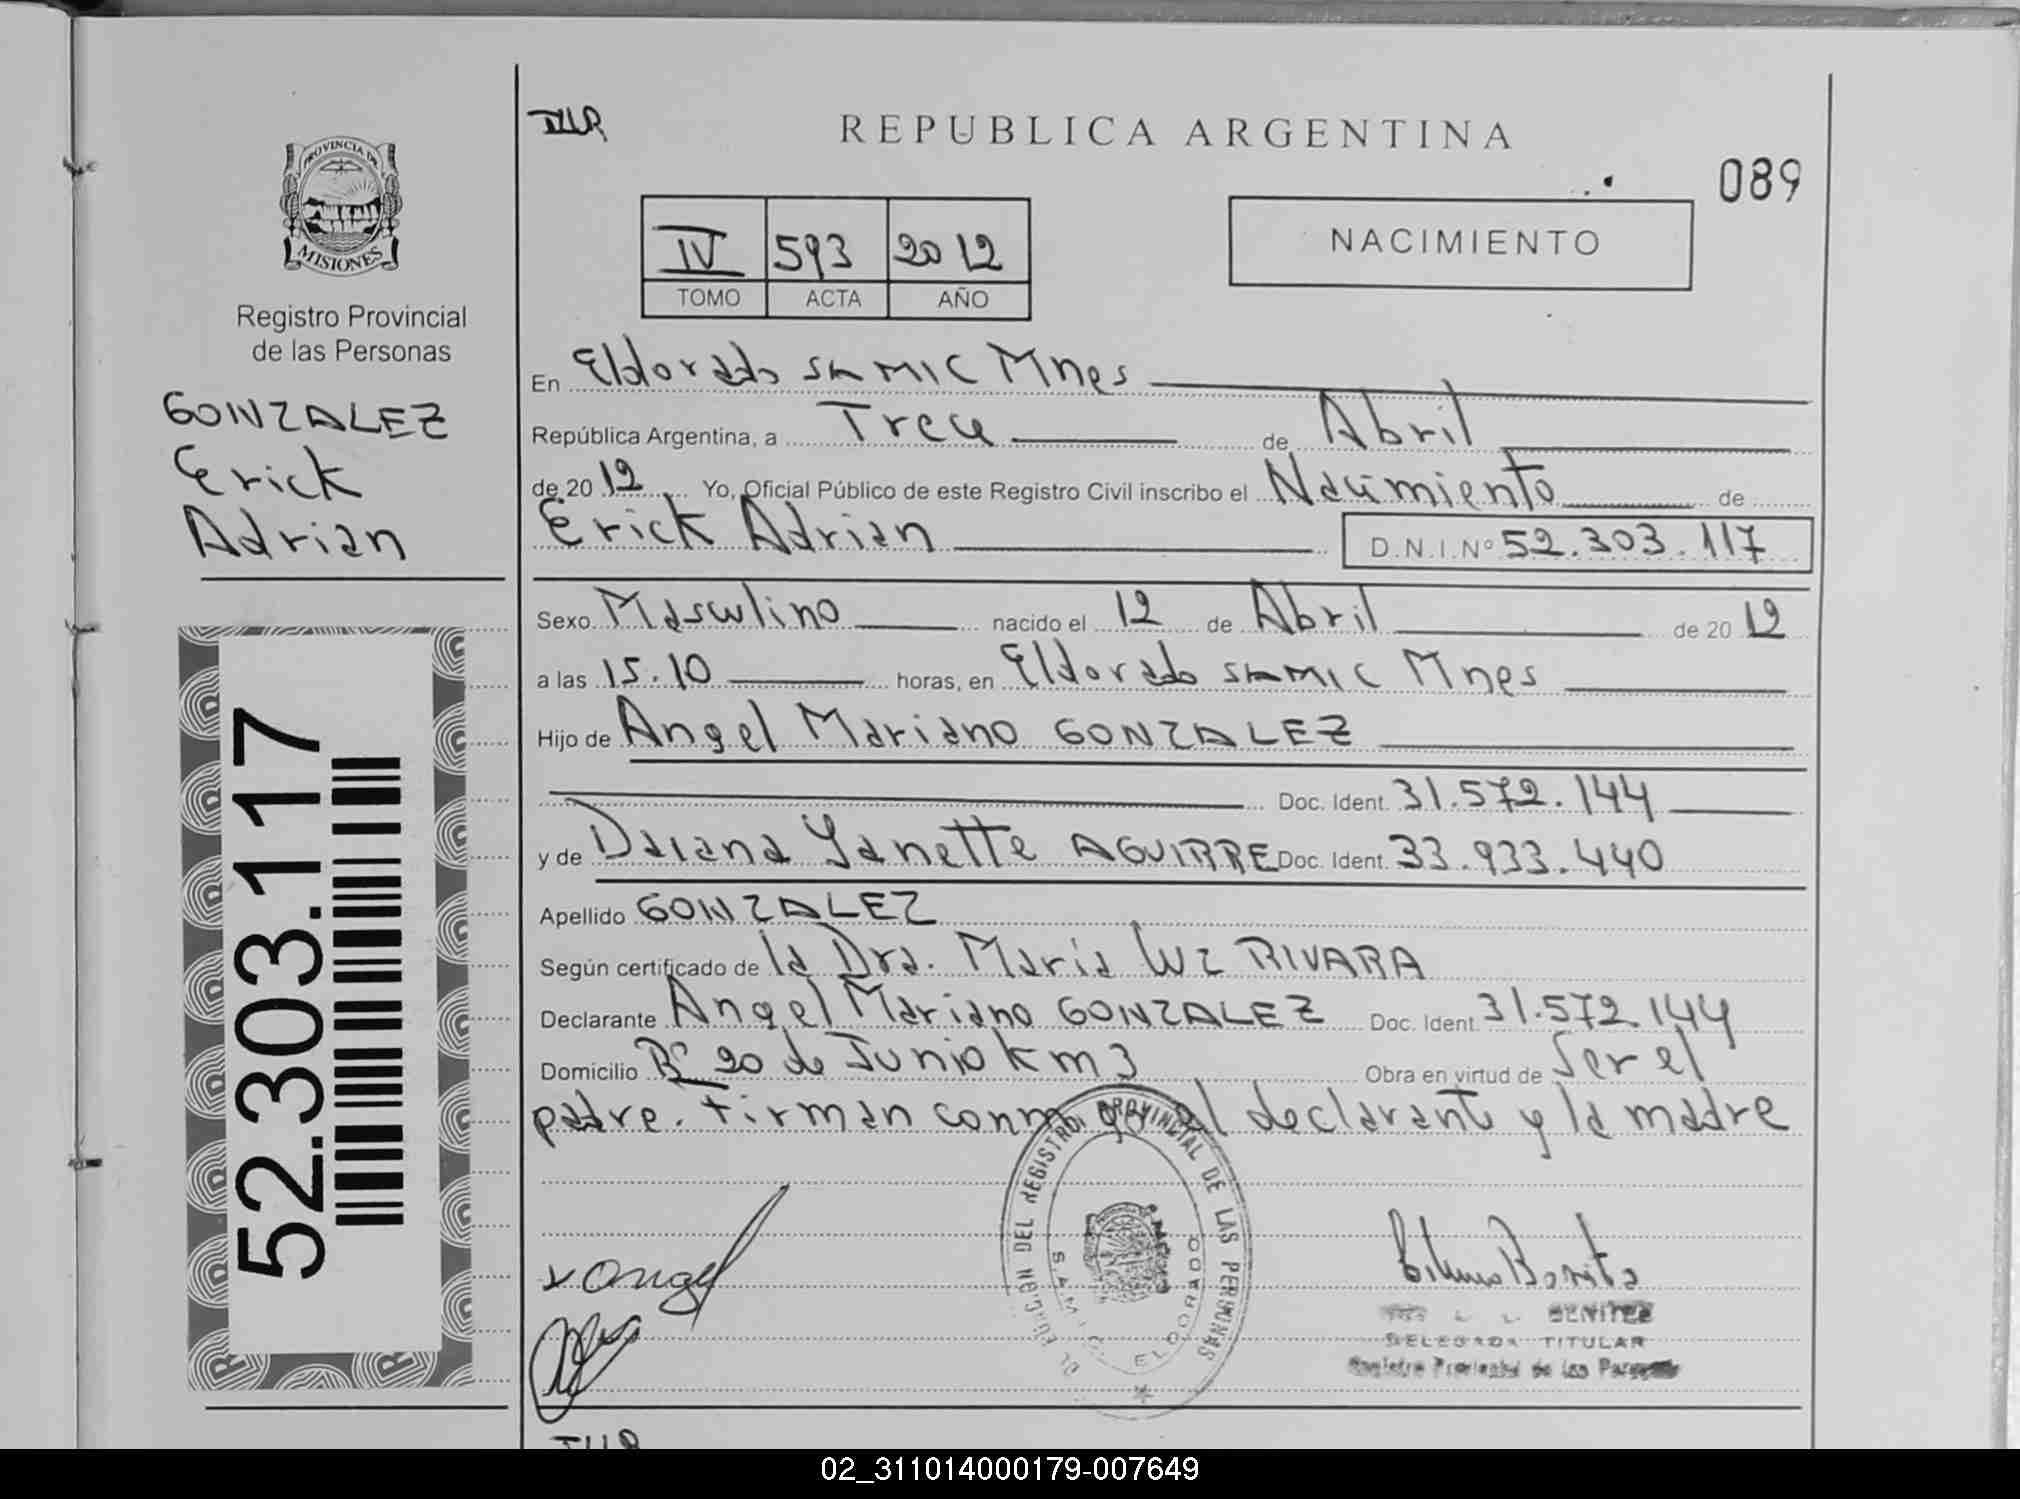 REPUBLICA ARGENTINA
089
PROVINCIA DE
MISIONES
Registro Provincial
de las Personas
GONZALEZ
Erick
Adrian
52.303.117
IV 593 2012
TOMO ACTA AÑO
NACIMIENTO
En Eldorado SAMIC Mnes
República Argentina, a Trece de Abril
de 2012 Yo, Oficial Público de este Registro Civil inscribo el Nacimiento de
Erick Adrian D.N.I.Nº 52.303.117
Sexo Masculino nacido el 12 de Abril de 2012
a las 15.10 horas, en Eldorado SAMIC Mnes
Hijo de Angel Mariano GONZALEZ
Doc. Ident. 31.572.144
y de Daiana Yanette AGUIRRE Doc. Ident. 33.933.440
Apellido GONZALEZ
Según certificado de la Dra. Maria Luz RIVARA
Declarante Angel Mariano GONZALEZ Doc. Ident. 31.572.144
Domicilio Bº 20 de Junio Km 3 Obra en virtud de Ser el
padre. Firman conmigo el declarante y la madre
DEL REGISTRO PROVINCIAL DE LAS PERSONAS
S.A.M.I.C. ELDORADO
Angel
BENITEZ
DELEGADA TITULAR
Registro Provincial de las Personas
02_311014000179-007649